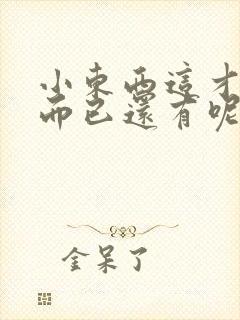 小東西這才
而已還有呢
金呆了